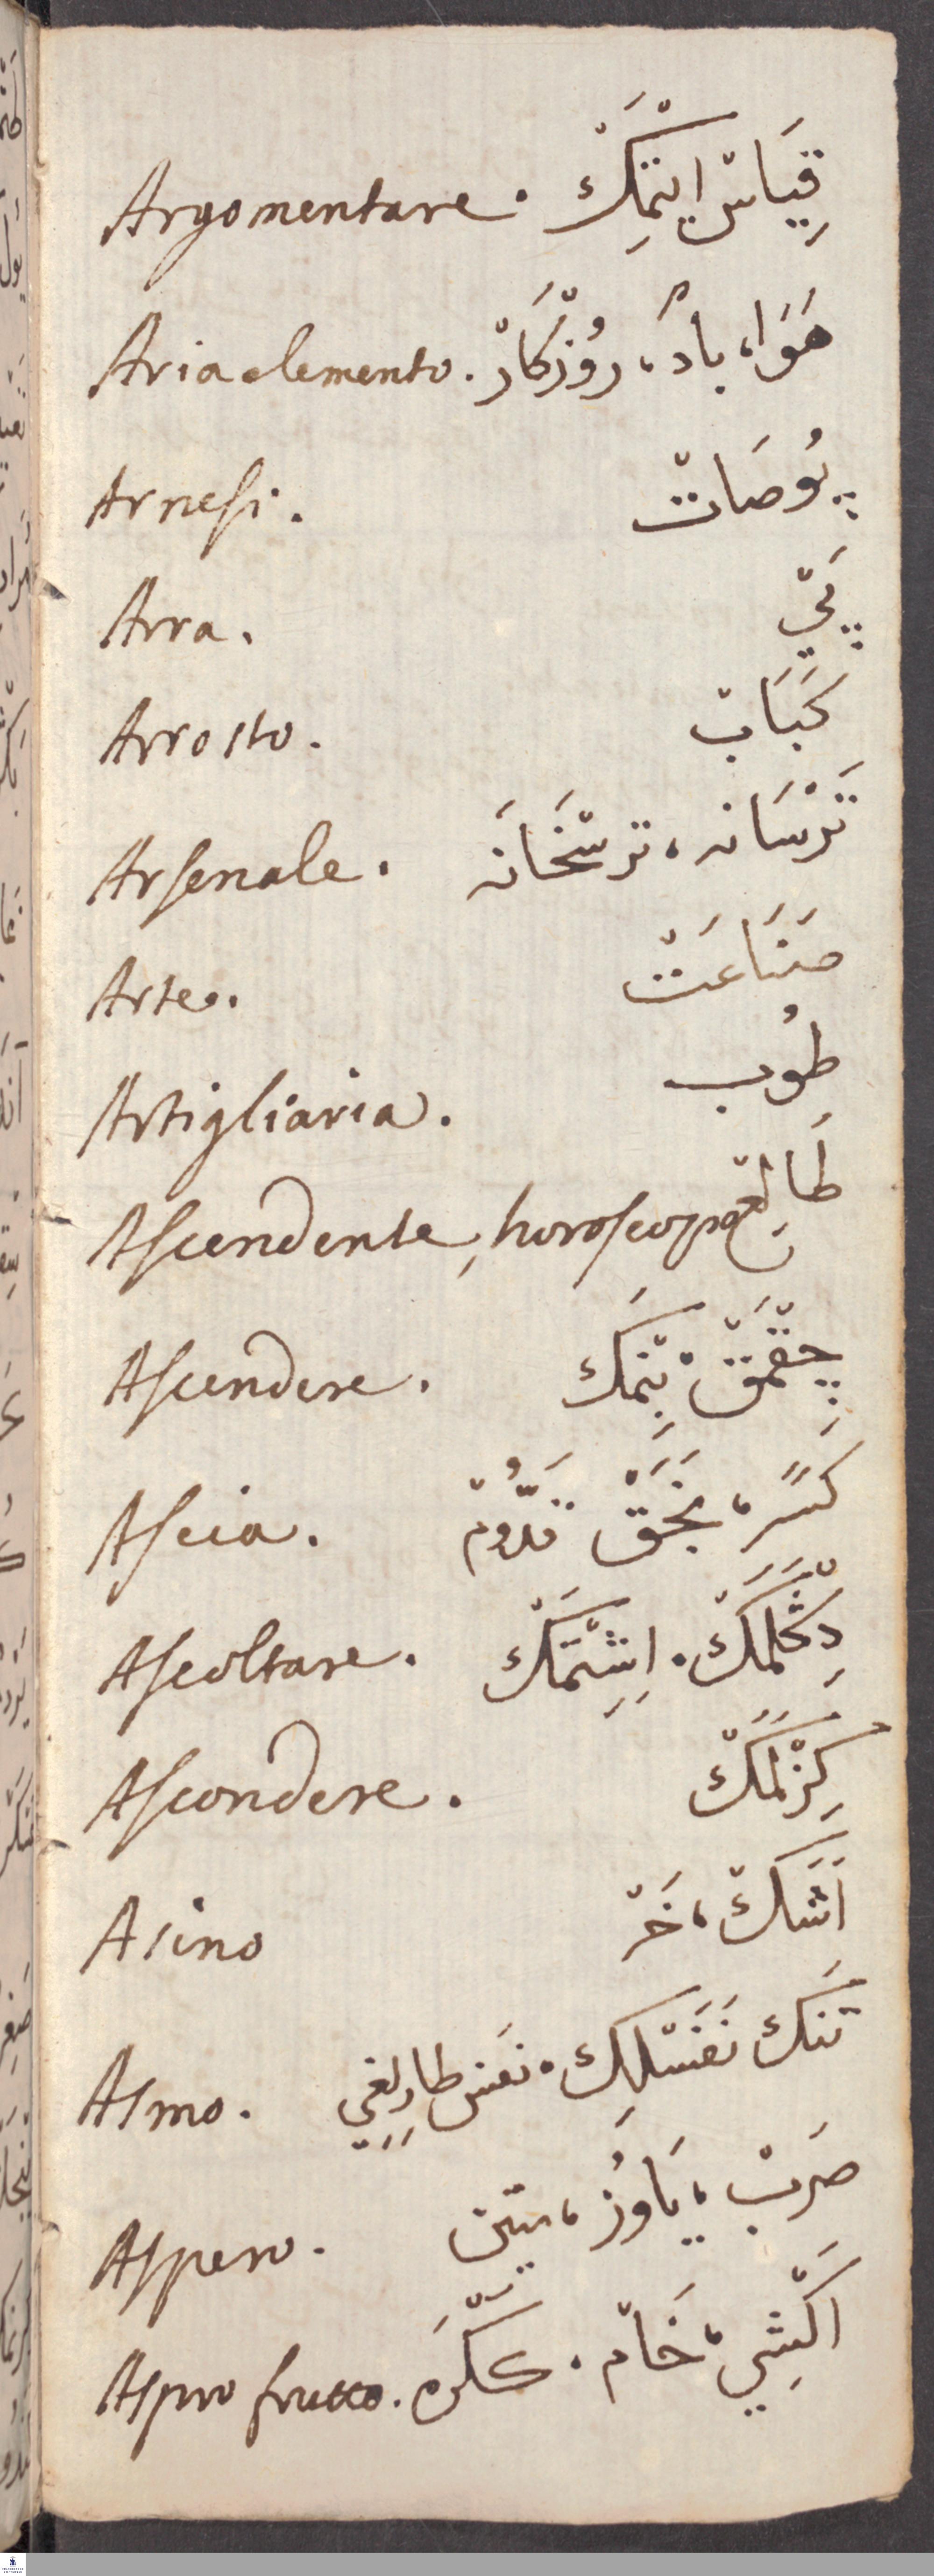 Argomentare. قِيَاسْ ايتْمِكَْ
Aria elemento. هَوَا، بادْ، رُوْزكَارْ
Arnesi. پُوصَاتْ
Arra. پَيْ
Arrosto. كَبَابْ
Arsenale. تَرْسَانه، ترسْخَانَه
Arte. صَنَاعَتْ
Artigliaria. طُوب
Ascendente, horoscopo طَالِعْ
Ascendere. چِقْمَقْ، بِنْمَك
Ascia. كَسَر، نَجَقْ قَدُّومْ
Ascoltare. دِڭْلَمَكْ. اِشِتْمَكْ
Ascondere. كِزْلَمَكْ
Asino اَشَكْ، خَرْ
Asmo. تَنَك نَفَسْلِك، نفَس طارلِغِي
Aspero. صَربْ، يَاوُزْ، يتين
Aspro frutto. اَكْشِي، خَامْ. كَكْرَه